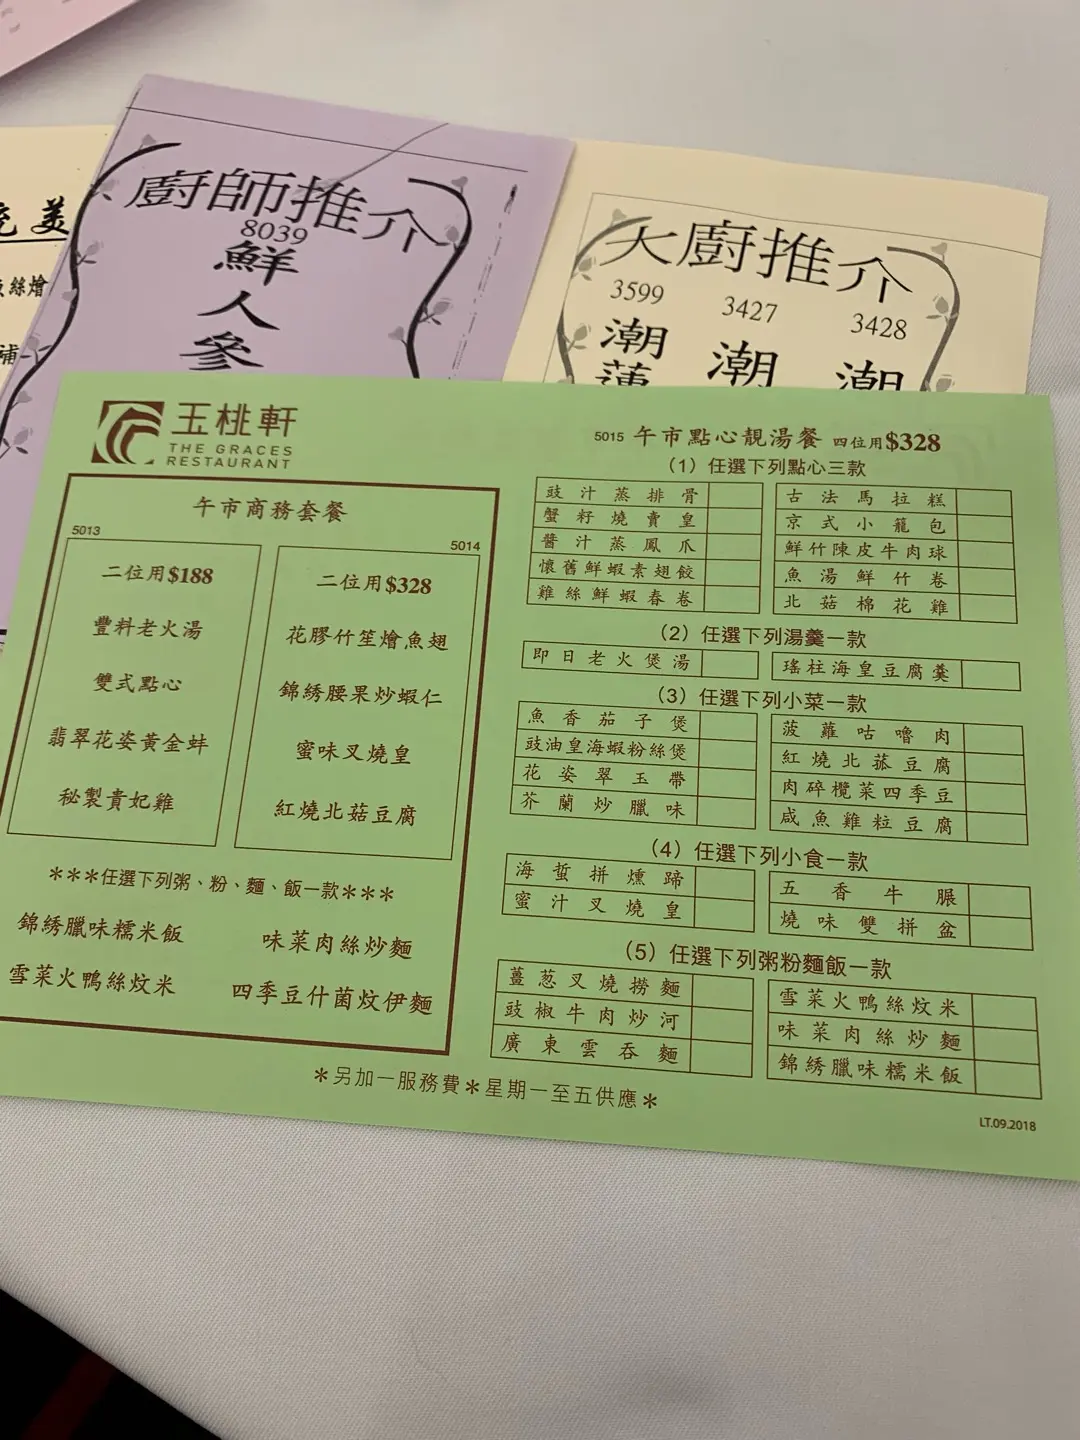 廚師推介
8039
鮮
人
參
大廚推介
3599 3427 3428
潮 潮 潮
蓮
美
絲燴
補
玉桃軒
THE GRACES
RESTAURANT
午市商務套餐
5013
二位用$188
豐料老火湯
雙式點心
翡翠花姿黃金蚌
秘製貴妃雞
5014
二位用$328
花膠竹笙燴魚翅
錦綉腰果炒蝦仁
蜜味叉燒皇
紅燒北菇豆腐
***任選下列粥、粉、麵、飯一款***
錦綉臘味糯米飯 味菜肉絲炒麵
雪菜火鴨絲炆米 四季豆什菌炆伊麵
5015 午市點心靚湯餐 四位用$328
(1) 任選下列點心三款
豉汁蒸排骨 古法馬拉糕
蟹籽燒賣皇 京式小籠包
醬汁蒸鳳爪 鮮竹陳皮牛肉球
懷舊鮮蝦素翅餃 魚湯鮮竹卷
雞絲鮮蝦春卷 北菇棉花雞
(2) 任選下列湯羹一款
即日老火煲湯 瑤柱海皇豆腐羹
(3) 任選下列小菜一款
魚香茄子煲 菠蘿咕嚕肉
豉油皇海蝦粉絲煲 紅燒北菇豆腐
花姿翠玉帶 肉碎欖菜四季豆
芥蘭炒臘味 咸魚雞粒豆腐
(4) 任選下列小食一款
海蜇拼燻蹄 五香牛𦟌
蜜汁叉燒皇 燒味雙拼盆
(5) 任選下列粥粉麵飯一款
薑葱叉燒撈麵 雪菜火鴨絲炆米
豉椒牛肉炒河 味菜肉絲炒麵
廣東雲吞麵 錦綉臘味糯米飯
*另加一服務費*星期一至五供應*
LT.09.2018